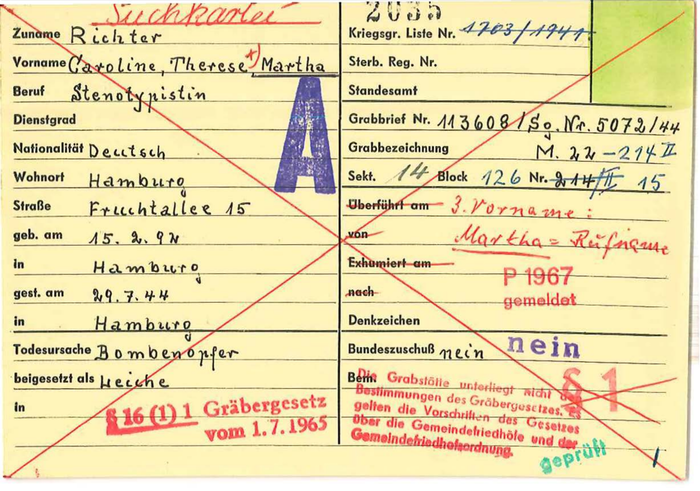 Suchkartei
Zuname Richter
Vorname Caroline, Therese +) Martha
Beruf Stenotypistin
Dienstgrad
Nationalität Deutsch
Wohnort Hamburg
Straße Fruchtallee 15
geb. am 15.2.92
in Hamburg
gest. am 29.7.44
in Hamburg
Todesursache Bombenopfer
beigesetzt als Leiche
in
§ 16 (1) 1 Gräbergesetz
vom 1.7.1965
A
2035
Kriegsgr. Liste Nr. 1703/1941.
Sterb. Reg. Nr.
Standesamt
Grabbrief Nr. 113608/Sg. Nr. 5072/44
Grabbezeichnung M. 22 - 214 II
Sekt. 14 Block 126 Nr. 214/II 15
Überführt am 3. Vorname:
von Martha = Rufname
Exhumiert am
nach P 1967
gemeldet
Denkzeichen
Bundeszuschuß nein nein
Bem. § 1
Die Grabstätte unterliegt nicht den
Bestimmungen des Gräbergesetzes. Es
gelten die Vorschriften des Gesetzes
über die Gemeindefriedhöfe und der
Gemeindefriedhofsordnung.
geprüft
1